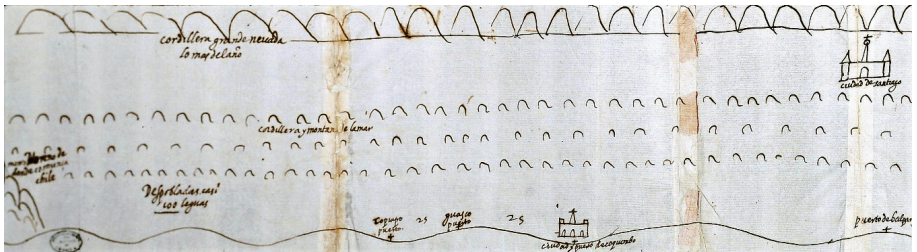 cordillera grande nevada
lo mas del año
ciudad de santiago
cordillera y montaña de la mar
donde comiença
chile
Despobladas casi
100 leguas
copiapo
puerto
25
guasco
puerto
25
ciudad y puerto de coquimbo
puerto de